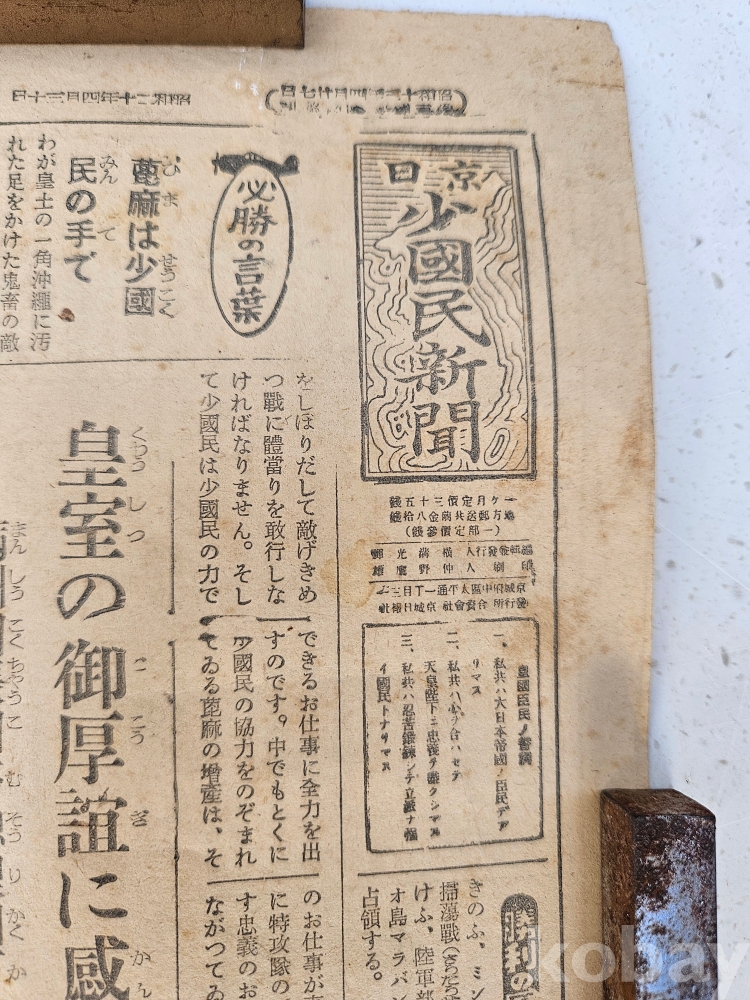 昭和二十年四月三十日
京日
少國民新聞
一ケ月定價三十五錢
地方郵送共稅金八拾錢
(一部定價參錢)
皇國臣民ノ誓詞
一、私共ハ大日本帝國ノ臣民デア
リマス
二、私共ハ心ヲ合ハセテ
天皇陛下ニ忠義ヲ盡クシマス
三、私共ハ忍苦鍛鍊シテ立派ナ強
イ國民トナリマス
きのふ、ミン
掃蕩戰
けふ、陸軍部
オ島マラバン
占領する。
必勝の言葉
蓖麻は少國
ひま せうこく
民の手で
みん て
わが皇土の一角沖繩に汚
れた足をかけた鬼畜の敵
をしぼりだして敵げきめ
つ戰に體當りを敢行しな
ければなりません。そし
て少國民は少國民の力で
できるお仕事に全力を出
すのです。中でもとくに
少國民の協力をのぞまれ
てゐる蓖麻の增産は、そ
のお仕事が
に特攻隊の
す忠義のお
ながつてゐ
皇室の御厚誼に感
くわうしつ ご こう ぎ かん
まんしうこくちやうこ む そうり かく か
kobay